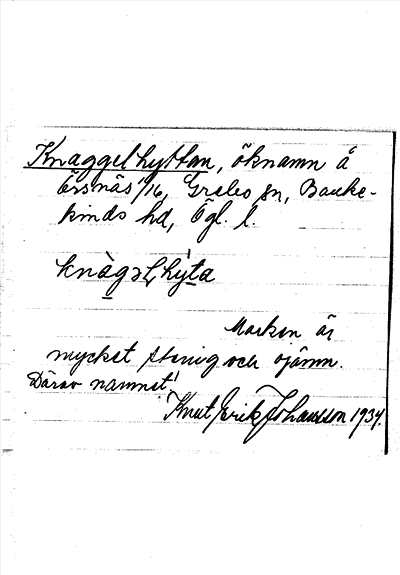 Knaggelhyttan, öknamn å
Örsnäs 1/16, Grebo sn, Banke-
kinds hd, Ögl. l.
knàgəlhy̆ta
Marken är
mycket stenig och ojämn.
Därav namnet!
Knut Erik Johansson 1934.